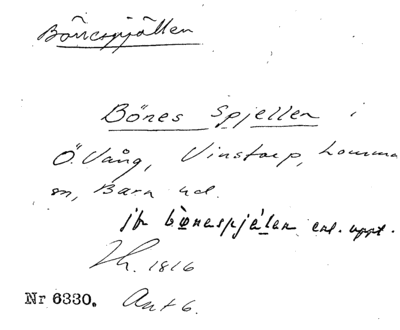 Bönespjällen
Bönes Spjellen i
Ö. Vång, Vinstorp, Lomma
sn, Bara hd.
jfr bönespjälen enl. uppt.
Jh. 1816
Nr 6330. Ant 6.